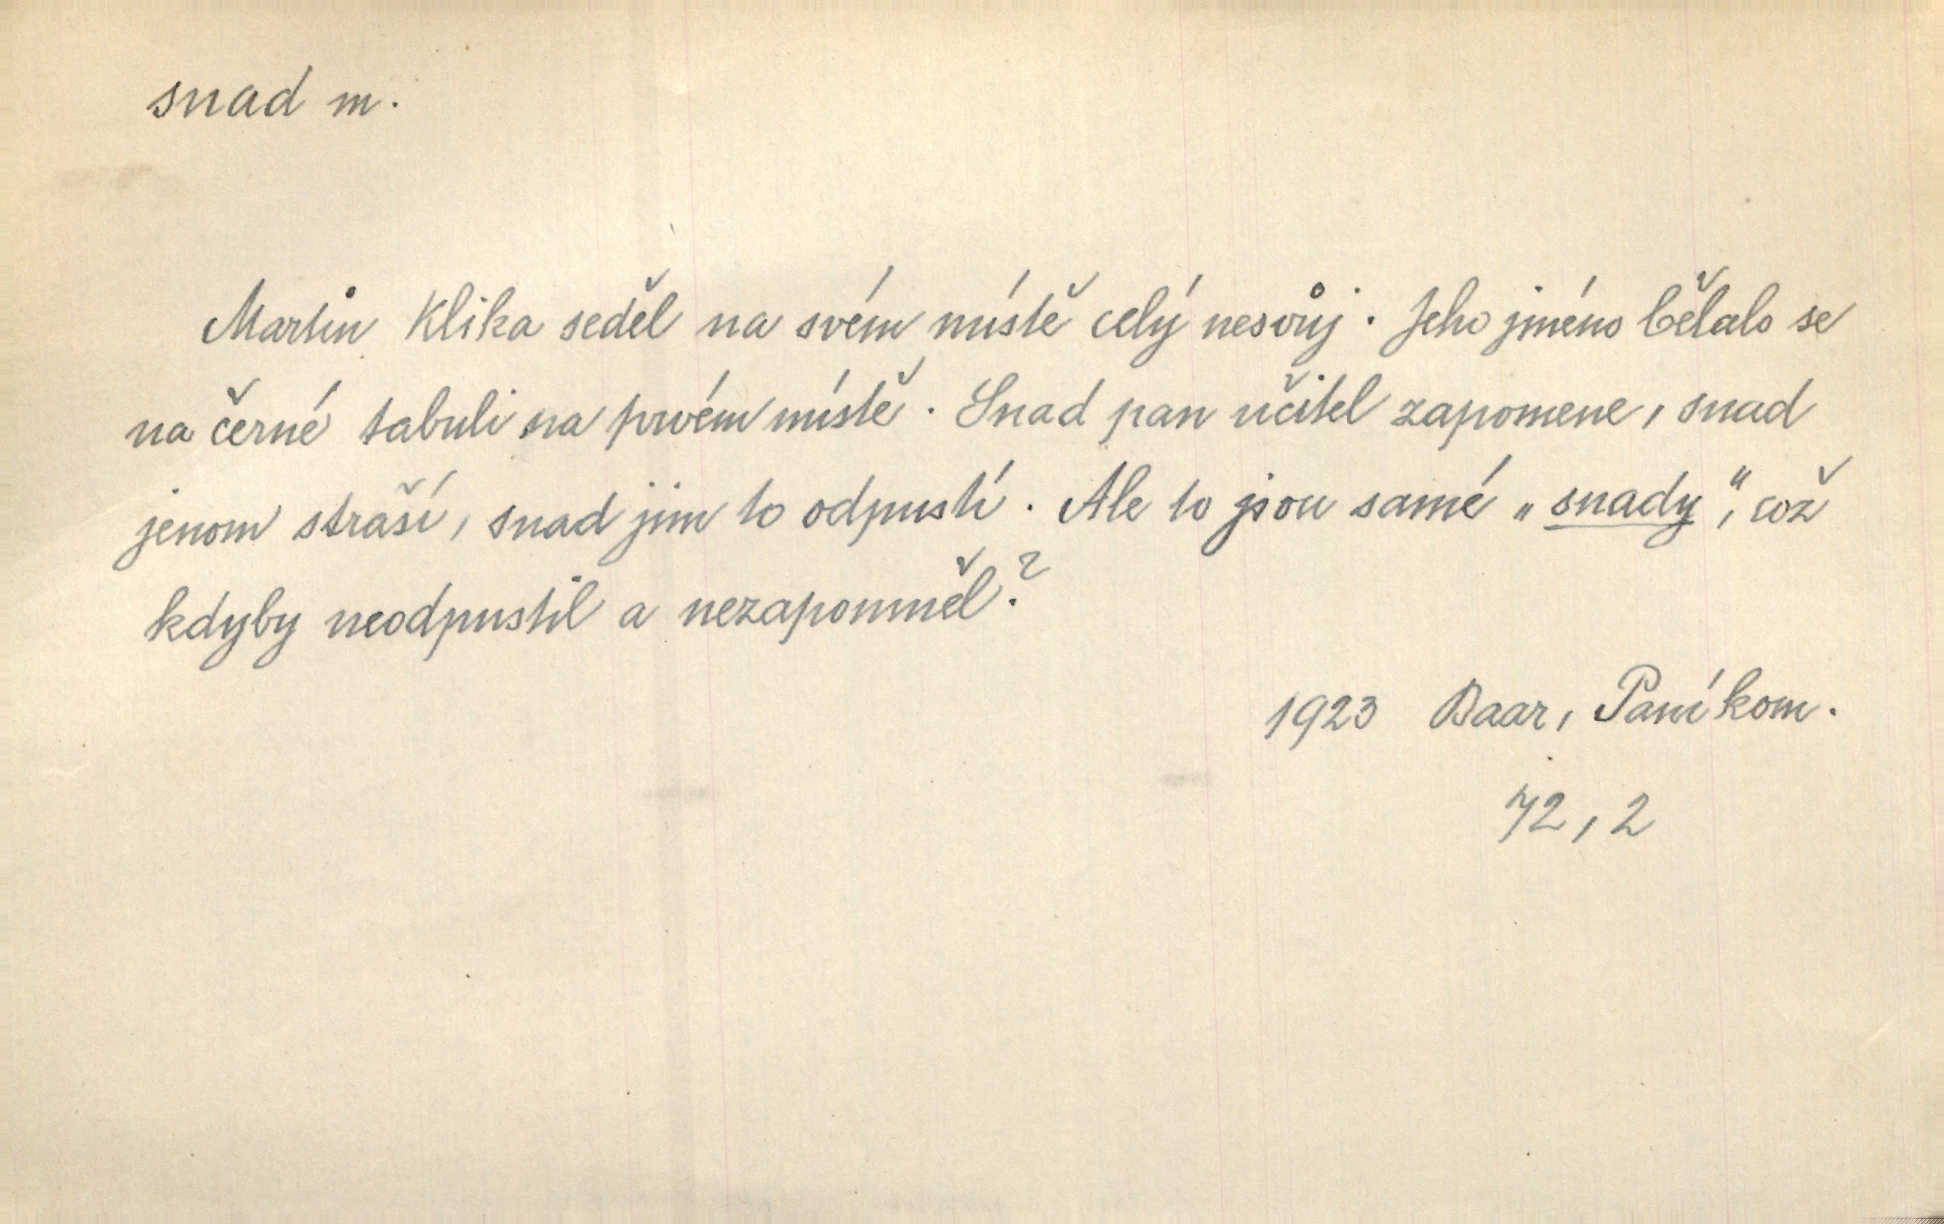 snad m.
Martin Klika seděl na svém místě celý nesvůj. Jeho jméno bělalo se
na černé tabuli na prvém místě. Snad pan učitel zapomene, snad
jenom straší, snad jim to odpustí. Ale to jsou samé „snady“, což
kdyby neodpustil a nezapomněl?
1923 Baar, Paní kom.
72, 2